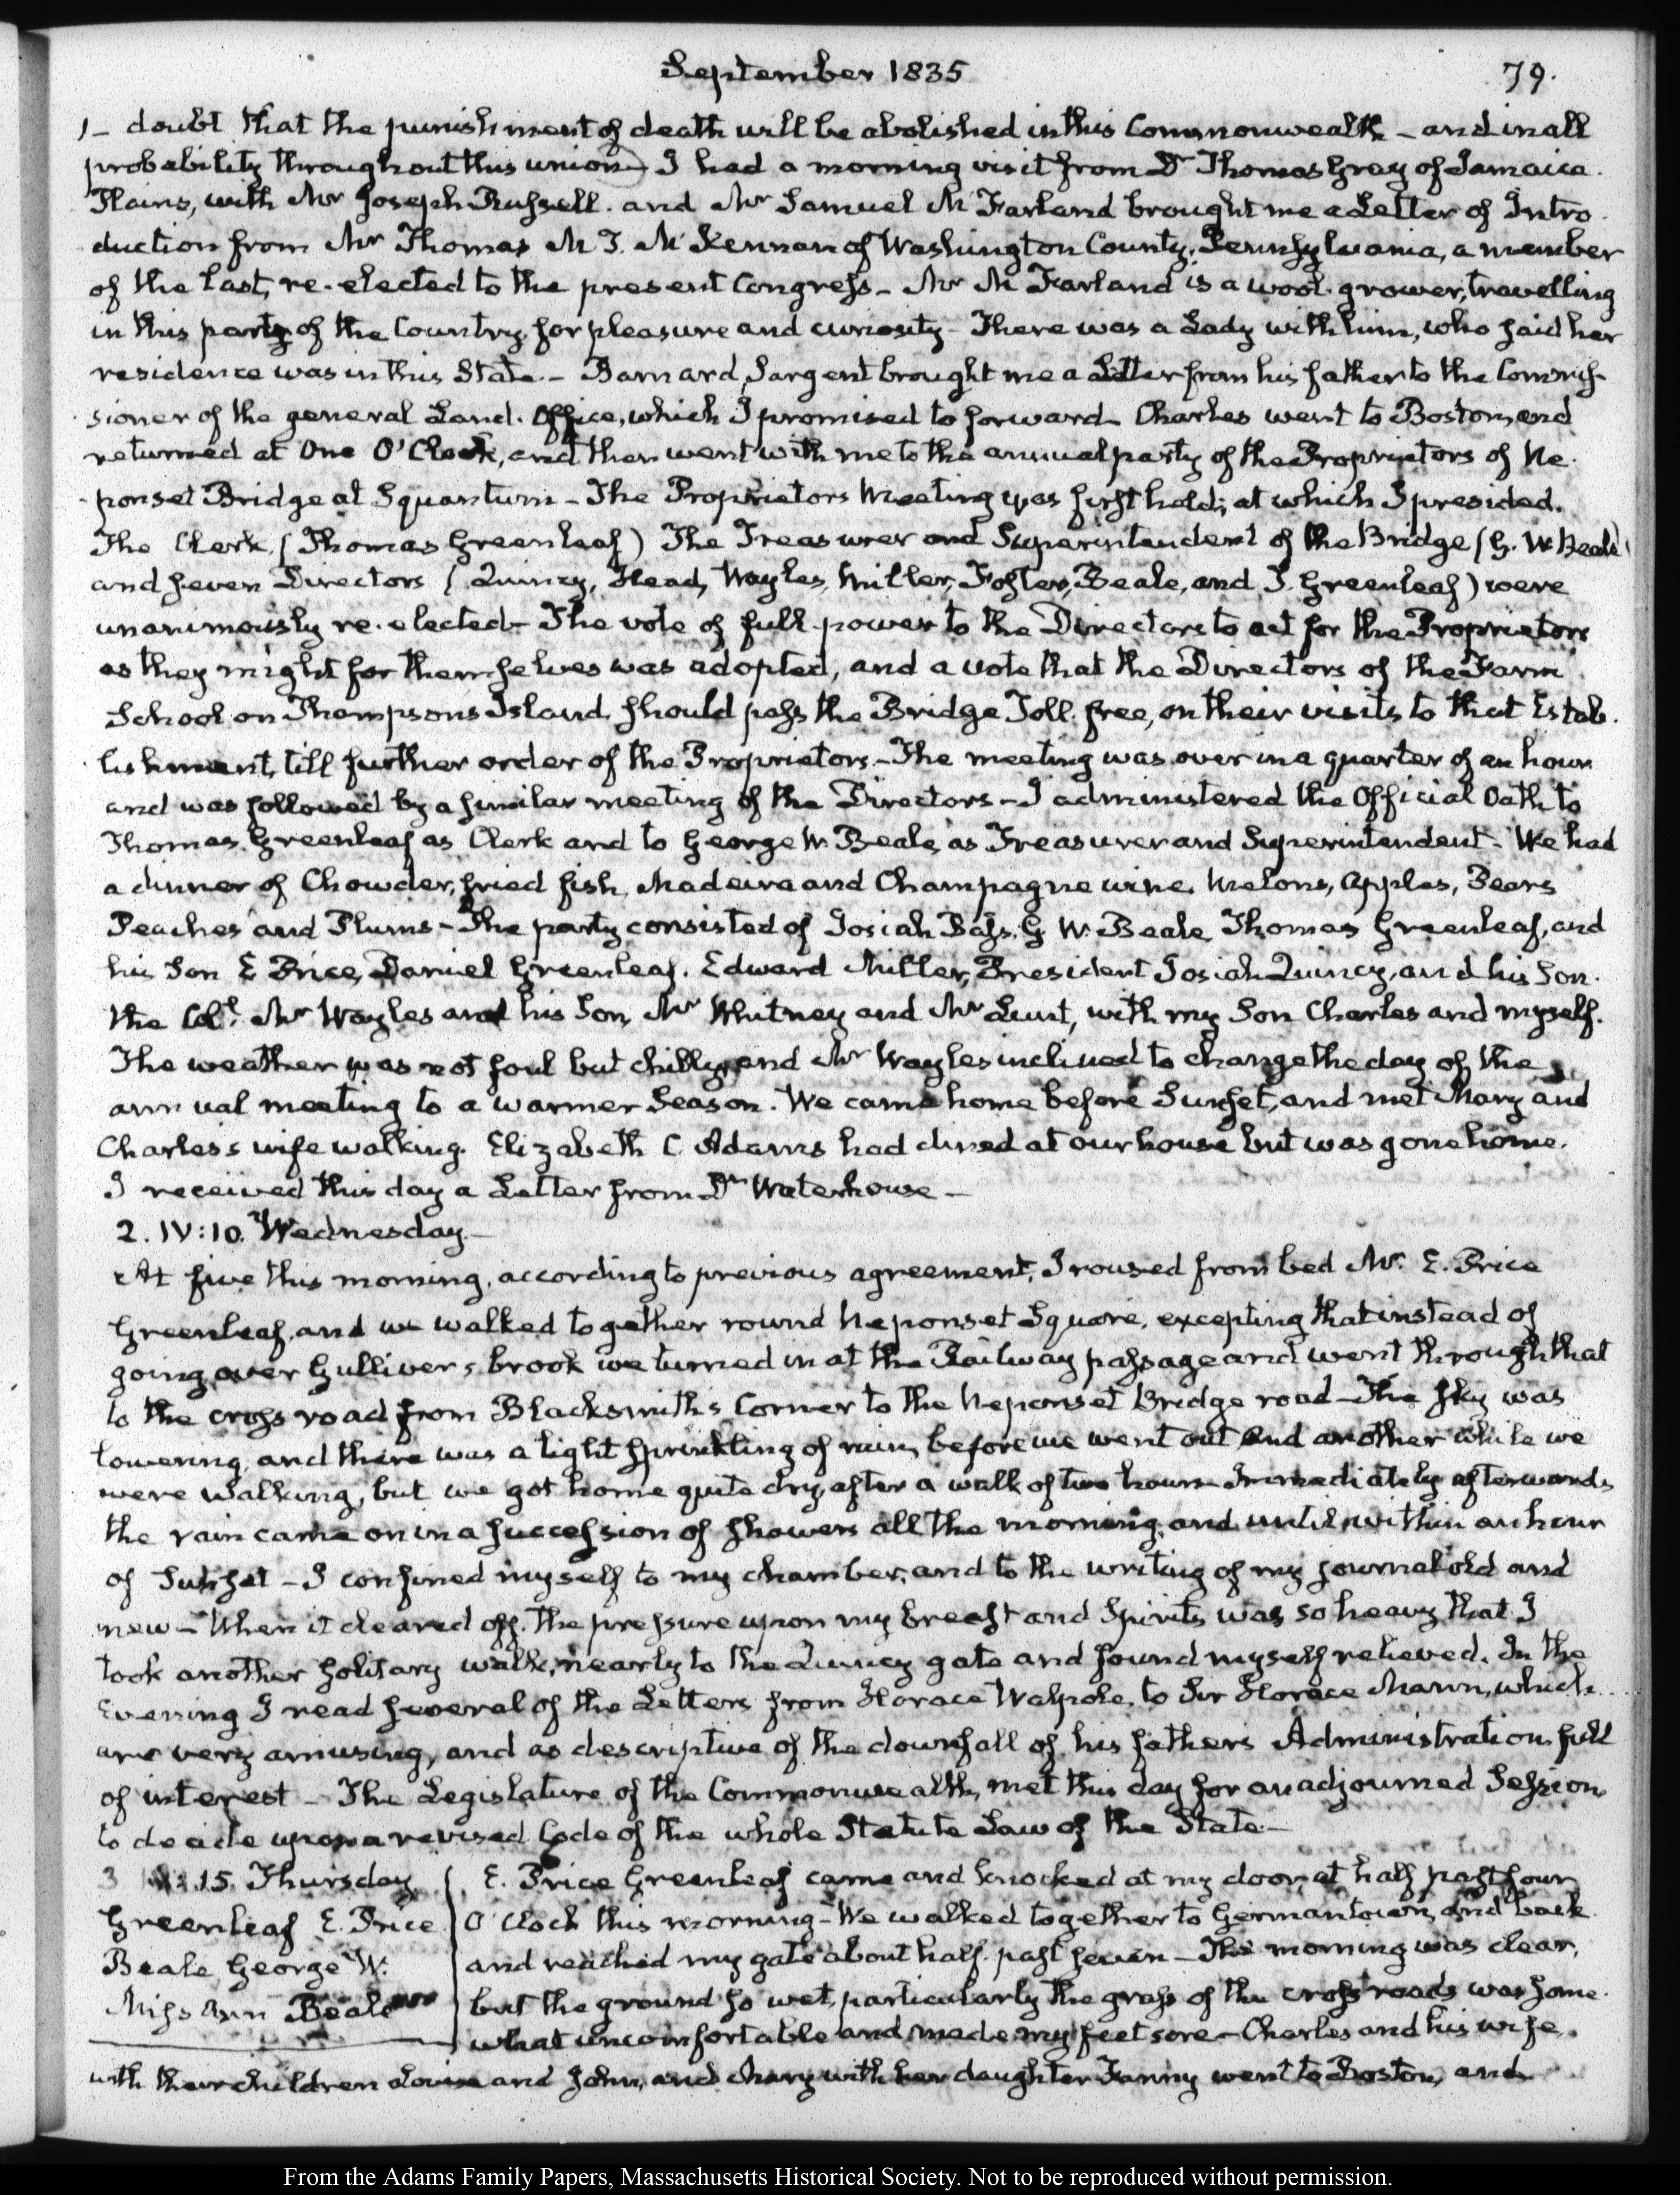 September 1835 79.
1 - doubt that the punishment of death will be abolished in this Commonwealth - and in all
probability throughout this union - I had a morning visit from Dr Thomas Gray of Jamaica
Plains, with Mr Joseph Russell. and Mr Samuel McFarland brought me a Letter of Intro
duction from Mr Thomas M. T. McKennan of Washington County, Pennsylvania, a member
of the last, re-elected to the present Congress - Mr McFarland is a wool-grower, travelling
in this part of the Country for pleasure and curiosity - There was a Lady with him, who said her
residence was in this State. - Barnard Sargent brought me a Letter from his father to the Commis-
sioner of the general Land. Office, which I promised to forward - Charles went to Boston, and
returned at One O'Clock, and then went with me to the annual party of the Proprietors of Ne
ponset Bridge at Squantum - The Proprietors Meeting was first held; at which I presided.
The Clerk (Thomas Greenleaf) The Treasurer and Superintendent of the Bridge (G. W. Beale)
and seven Directors (Quincy, Head, Wayles, Miller, Foster, Beale, and T. Greenleaf) were
unanimously re-elected - The vote of full power to the Directors to act for the Proprietors
as they might for themselves was adopted, and a vote that the Directors of the Farm
School on Thompsons Island should pass the Bridge Toll. free, on their visits to that Estab.
lishment, till further order of the Proprietors - The meeting was over in a quarter of an hour
and was followed by a similar meeting of the Directors - I administered the Official Oath to
Thomas Greenleaf as Clerk and to George W. Beale, as Treasurer and Superintendent - We had
a dinner of Chowder, fried fish, Madeira and Champagne wine, Melons, Apples, Pears
Peaches and Plums - The party consisted of Josiah Bass, G. W. Beale, Thomas Greenleaf, and
his Son E Price, Daniel Greenleaf. Edward Miller, President Josiah Quincy, and his Son.
the Coll. Mr Wayles and his Son, Mr Whitney and Mr Lunt, with my Son Charles and myself.
The weather was not foul but chilly, and Mr Wayles inclined to change the day of the
annual meeting to a warmer Season. We came home before Sunset, and met Mary and
Charles's wife walking. Elizabeth C. Adams had dined at our house but was gone home.
I received this day a Letter from Dr Waterhouse -
2. IV:10. Wednesday -
At five this morning, according to previous agreement, I roused from bed Mr. E. Price
Greenleaf, and we walked together round Neponset Square, excepting that instead of
going over Gulliver's brook we turned in at the Railway passage and went through that
to the cross road from Blacksmith's Corner to the Neponset Bridge road - The sky was
lowering, and there was a light sprinkling of rain, before we went out and another while we
were walking, but we got home quite dry, after a walk of two hours. Immediately afterwards
the rain came on in a succession of showers all the morning, and until within an hour
of Sunset - I confined myself to my chamber, and to the writing of my journal old and
new - When it cleared off. the pressure upon my breast and Spirits was so heavy that I
took another solitary walk, nearly to the Quincy gate and found myself relieved. In the
Evening I read several of the Letters from Horace Walpole, to Sir Horace Mann, which
are very amusing, and as descriptive of the downfall of his father's Administration full
of interest - The Legislature of the Commonwealth, met this day for an adjourned Session
to decide upon a revised Code of the whole Statute Law of the State -
3 15. Thursday
Greenleaf E. Price
Beale George W.
Miss Ann Beale
E. Price Greenleaf came and knocked at my door, at half past four
O'Clock this morning - We walked together to Germantown, and back
and reached my gate about half. past seven - The morning was clear,
but the ground so wet, particularly the grass of the cross roads was some.
what uncomfortable and made my feet sore - Charles and his wife,
with their children Louisa and John, and Mary with her daughter Fanny went to Boston, and
From the Adams Family Papers, Massachusetts Historical Society. Not to be reproduced without permission.